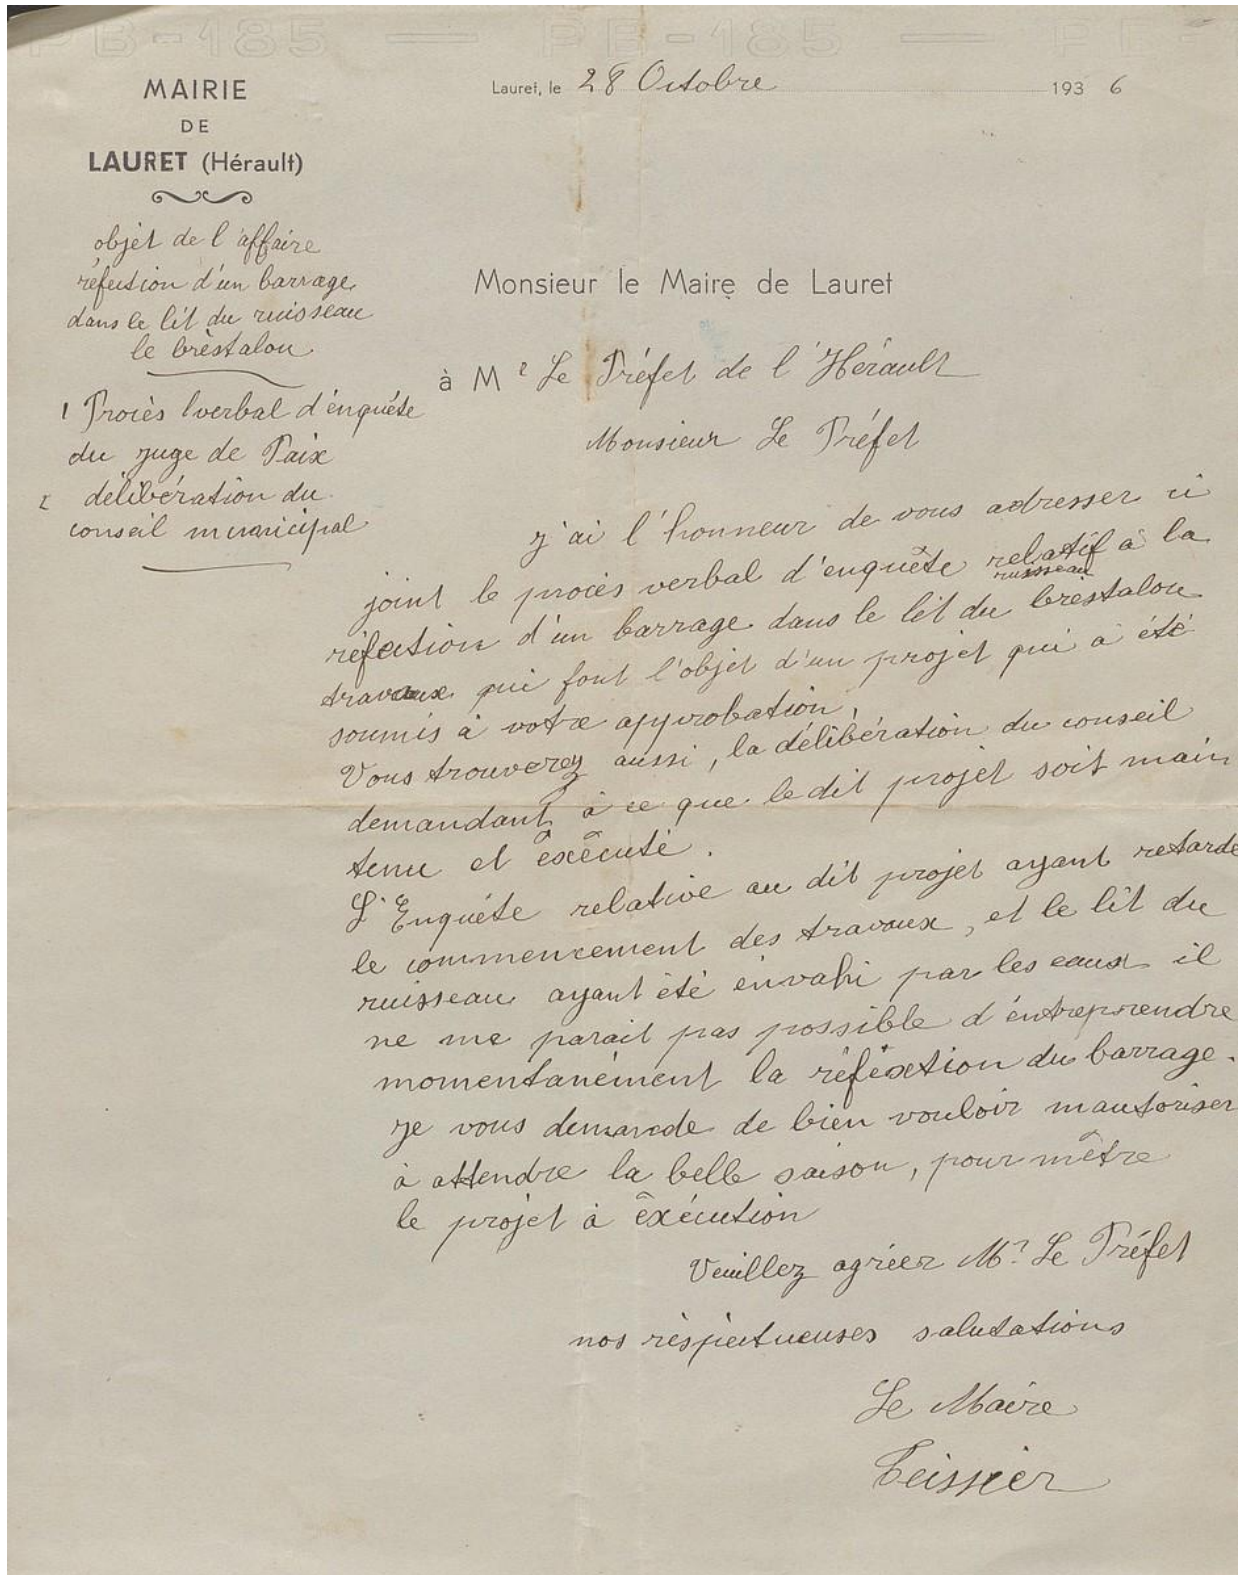 PB-185 — PB-185 —
MAIRIE
DE
LAURET (Hérault)
Lauret, le 28 Octobre 1936
objèt de l'affaire
réfection d'un barrage
dans le lit du ruisseau
le brèstalou
1 Procès verbal d'énquéte
du juge de Paix
2 délibération du
conseil municipal
Monsieur le Maire de Lauret
à Mr Le Préfet de l'Hérault
Monsieur Le Préfet
j'ai l'honneur de vous adresser ci
joint le procès verbal d'enquête relatif à la
réfection d'un barrage dans le lit du ruisseau brèstalou
travaux qui font l'objet d'un projet qui à été
soumis à votre approbation,
Vous trouverez aussi, la délibération du conseil
demandant à ce que le dit projet soit main
tenu et éxécuté.
L'Enquéte relative au dit projet ayant retardé
le commencement des travaux, et le lit du
ruisseau ayant été énvahi par les eaux il
ne me parait pas possible d'éntreprendre
momentanément la réféction du barrage.
je vous demande de bien vouloir mautoriser
à attendre la belle saison, pour mêtre
le projet à éxécution
Veuillez agréer Mr Le Préfet
nos réspectueuses salutations
Le Maire
Teissier